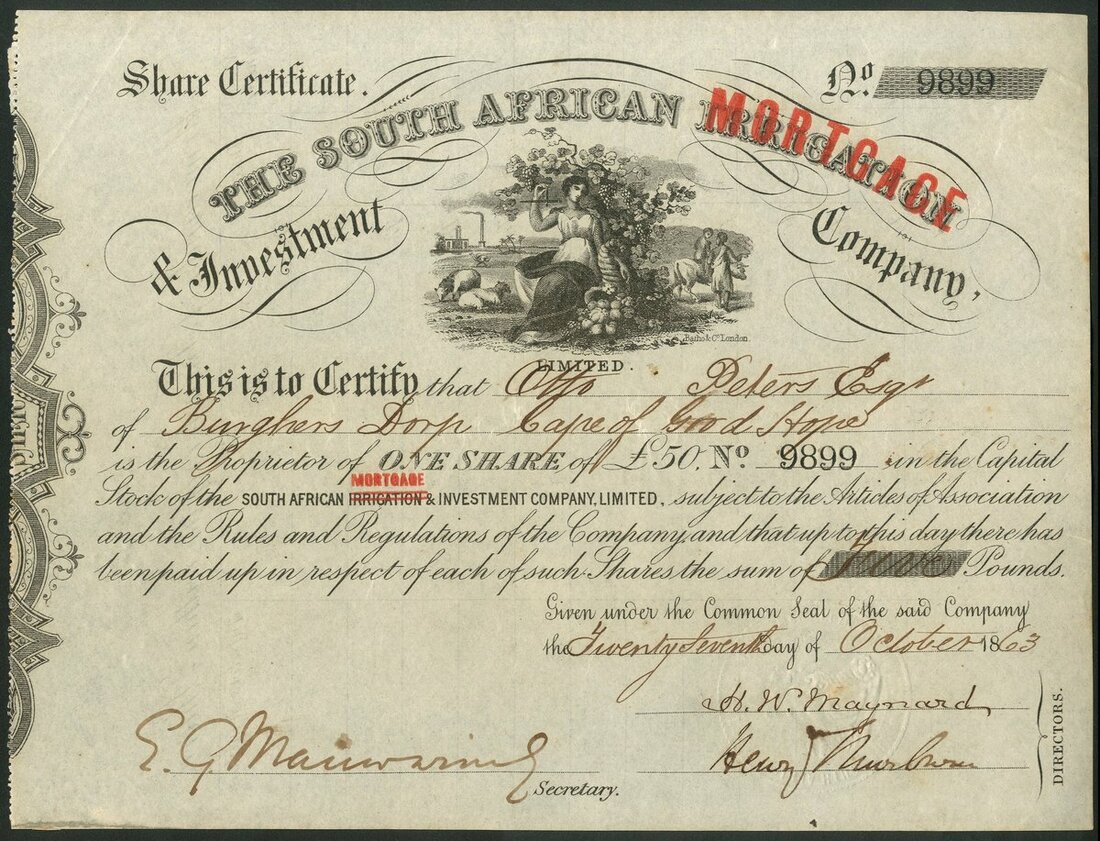 Share Certificate.
No. 9899
THE SOUTH AFRICAN IRRIGATION
MORTGAGE
& Investment Company,
Batho & Co. London.
LIMITED.
This is to Certify that Otto Peters Esqr
of Burghers Dorp Cape of Good Hope
is the Proprietor of ONE SHARE of £50. No 9899 in the Capital
MORTGAGE
Stock of the SOUTH AFRICAN IRRIGATION & INVESTMENT COMPANY, LIMITED, subject to the Articles of Association
and the Rules and Regulations of the Company, and that up to this day there has
been paid up in respect of each of such Shares the sum of Five Pounds.
Given under the Common Seal of the said Company
the Twenty Seventh day of October 1863
H. W. Maynard
E. G. Mainwaring
Henry
Secretary.
DIRECTORS.